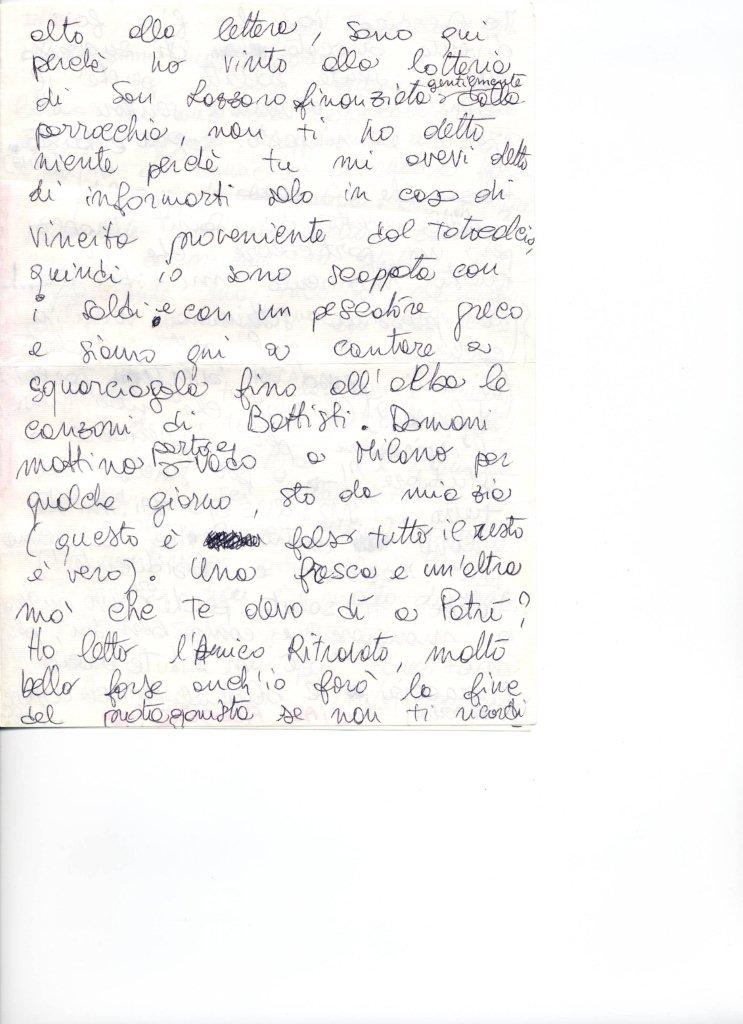 alto alla lettera, sono qui
perchè ho vinto alla lotteria
di San Lazzaro finanziata gentilmente dalla
parrocchia, non ti ho detto
niente perchè tu mi avevi detto
di informarti solo in caso di
vincita proveniente dal Totocalcio,
quindi io sono scappata con
i soldi e con un pescatore greco
e siamo qui a cantare a
squarciagola fino all'alba le
canzoni di Battisti. Domani
mattina parto e vado a Milano per
qualche giorno, sto da mia zia
(questo è falso tutto il resto
è vero). Una fresca e un'altra
mo' che te devo dì a Patrì?
Ho letto l'Amico Ritrovato, molto
bello forse anch'io farò la fine
del protagonista se non ti ricordi